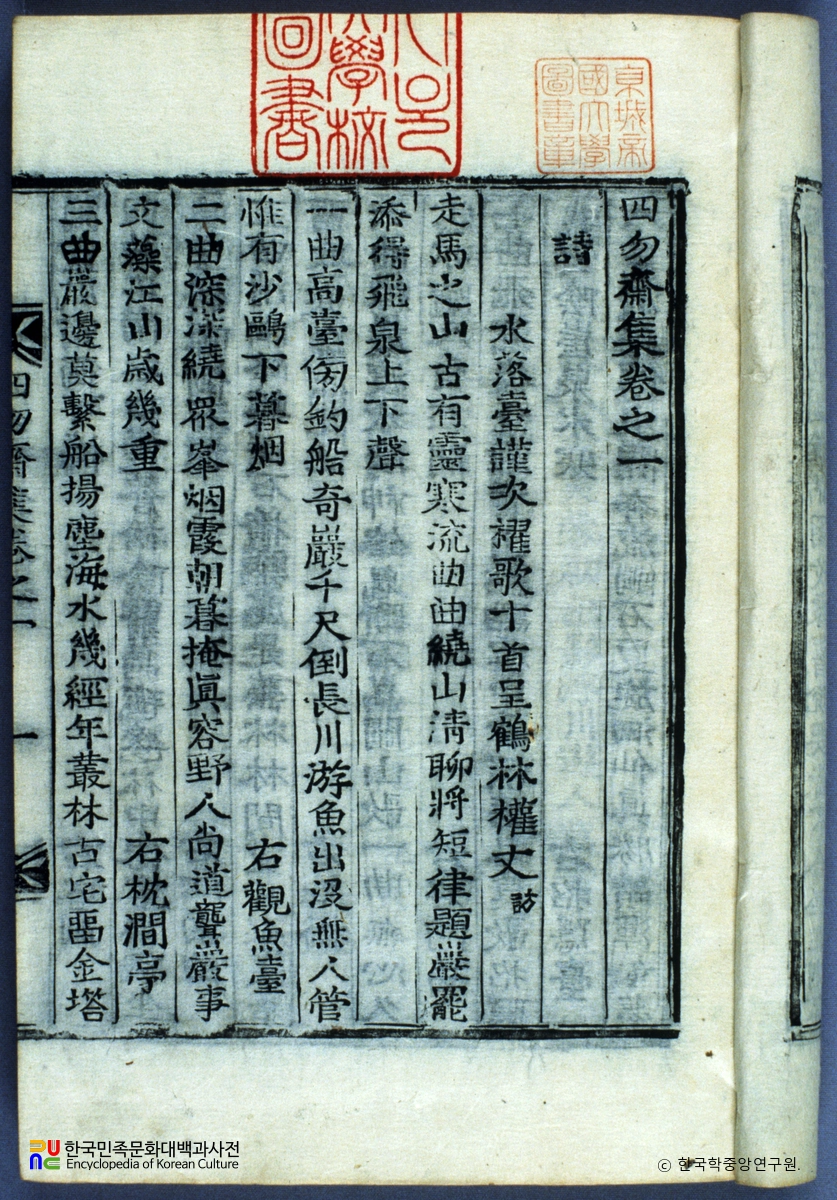 京城帝
國大學
圖書章
大學校
圖書
四勿齋集卷之一
詩
水落臺謹次櫂歌十首呈鶴林權丈訪
走馬之山古有靈寒流曲曲繞山淸聊將短律題巖罷
添得飛泉上下聲
一曲高臺傍釣船奇巖千尺倒長川游魚出沒無人管
惟有沙鷗下暮烟 右觀魚臺
二曲深深繞衆峯烟霞朝暮掩眞容野人尙道聾巖事
文藻江山歲幾重 右枕澗亭
三曲巖邊莫繫船揚塵海水幾經年叢林古宅留金塔
四勿齋集卷之一 一
한국민족문화대백과사전
Encyclopedia of Korean Culture
ⓒ 한국학중앙연구원.